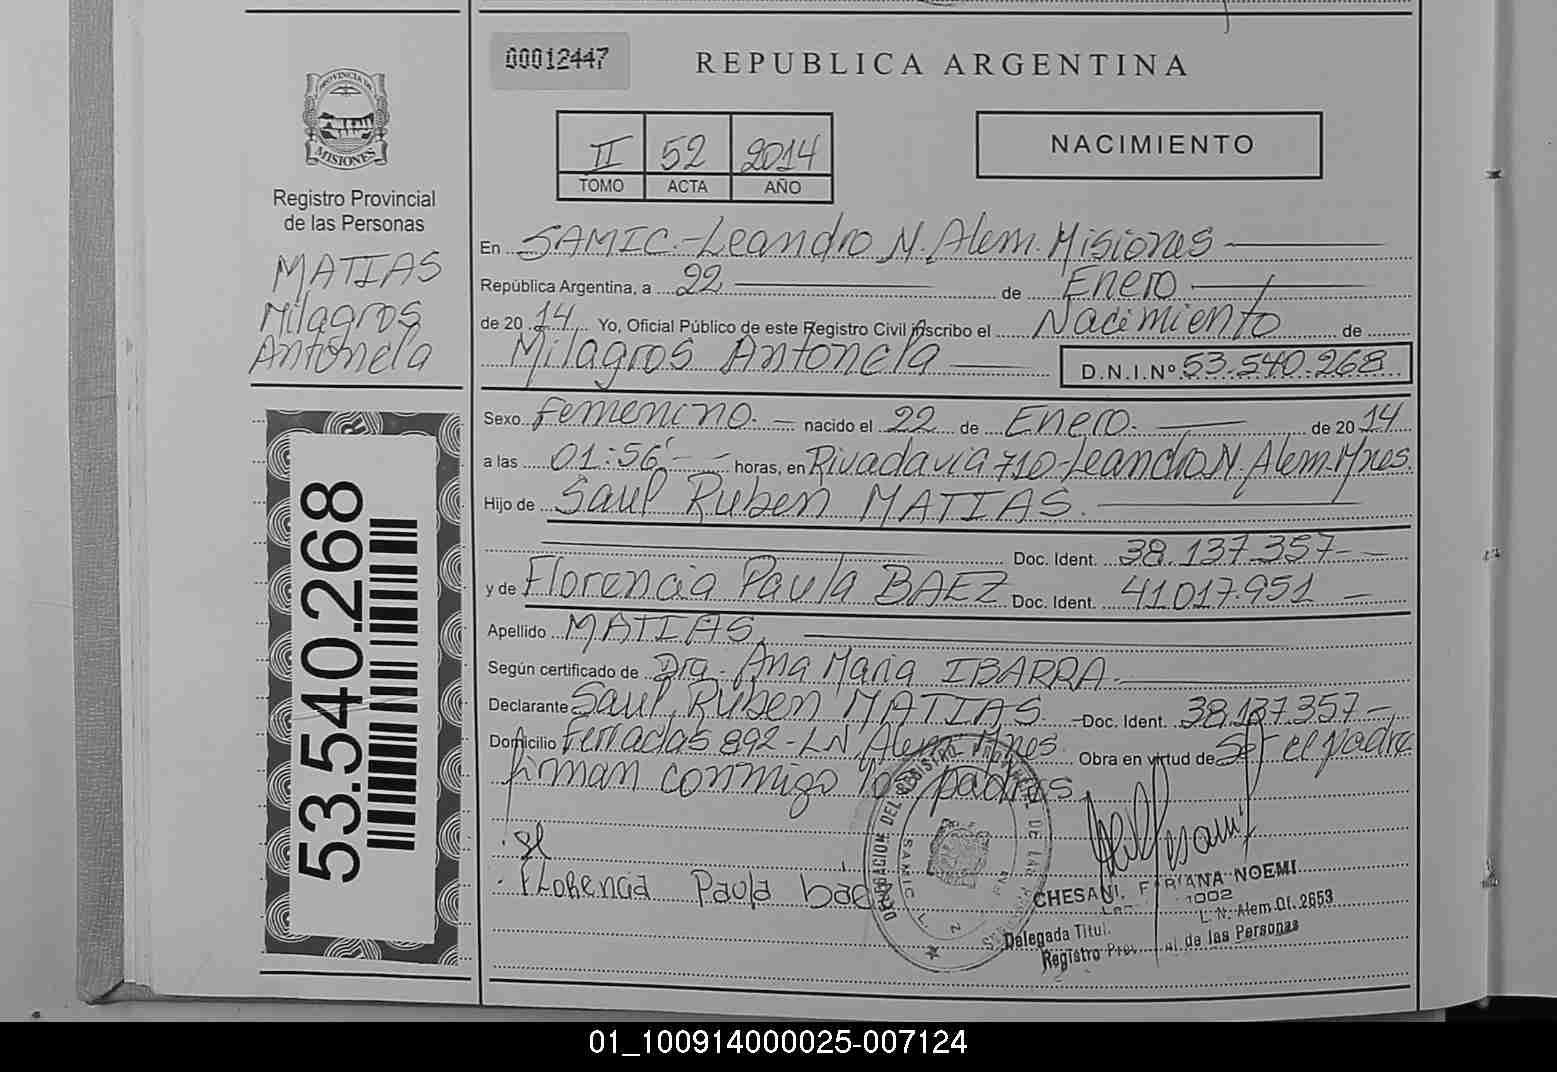 00012447
REPUBLICA ARGENTINA
PROVINCIA DE
MISIONES
Registro Provincial
de las Personas
MATIAS
Milagros
Antonela
II 52 2014
TOMO ACTA AÑO
NACIMIENTO
En SAMIC.-Leandro N. Alem. Misiones
República Argentina, a 22 de Enero
de 20 14 Yo, Oficial Público de este Registro Civil inscribo el Nacimiento de
Milagros Antonela D.N.I.Nº 53.540.268
Sexo Femenino. nacido el 22 de Enero. de 20 14
a las 01:56' horas, en Rivadavia 710-Leandro N. Alem-Mnes.
Hijo de Saul Ruben MATIAS.
Doc. Ident. 38.137.357-
y de Florencia Paula BAEZ Doc. Ident. 41.017.951
Apellido MATIAS.
Según certificado de Dra. Ana Maria IBARRA.
Declarante Saul Ruben MATIAS. Doc. Ident. 38.137.357-
Domicilio Ferradas 892-LN Alem Mnes. Obra en virtud de Ser el padre
firman conmigo los padres
Florencia Paula báez
53.540.268
DELEGACION DEL REGISTRO
SAMIC L N
CHESANI, FABIANA NOEMI
1002
L. N. Alem Of. 2653
Delegada Titul.
Registro de las Personas
01_100914000025-007124